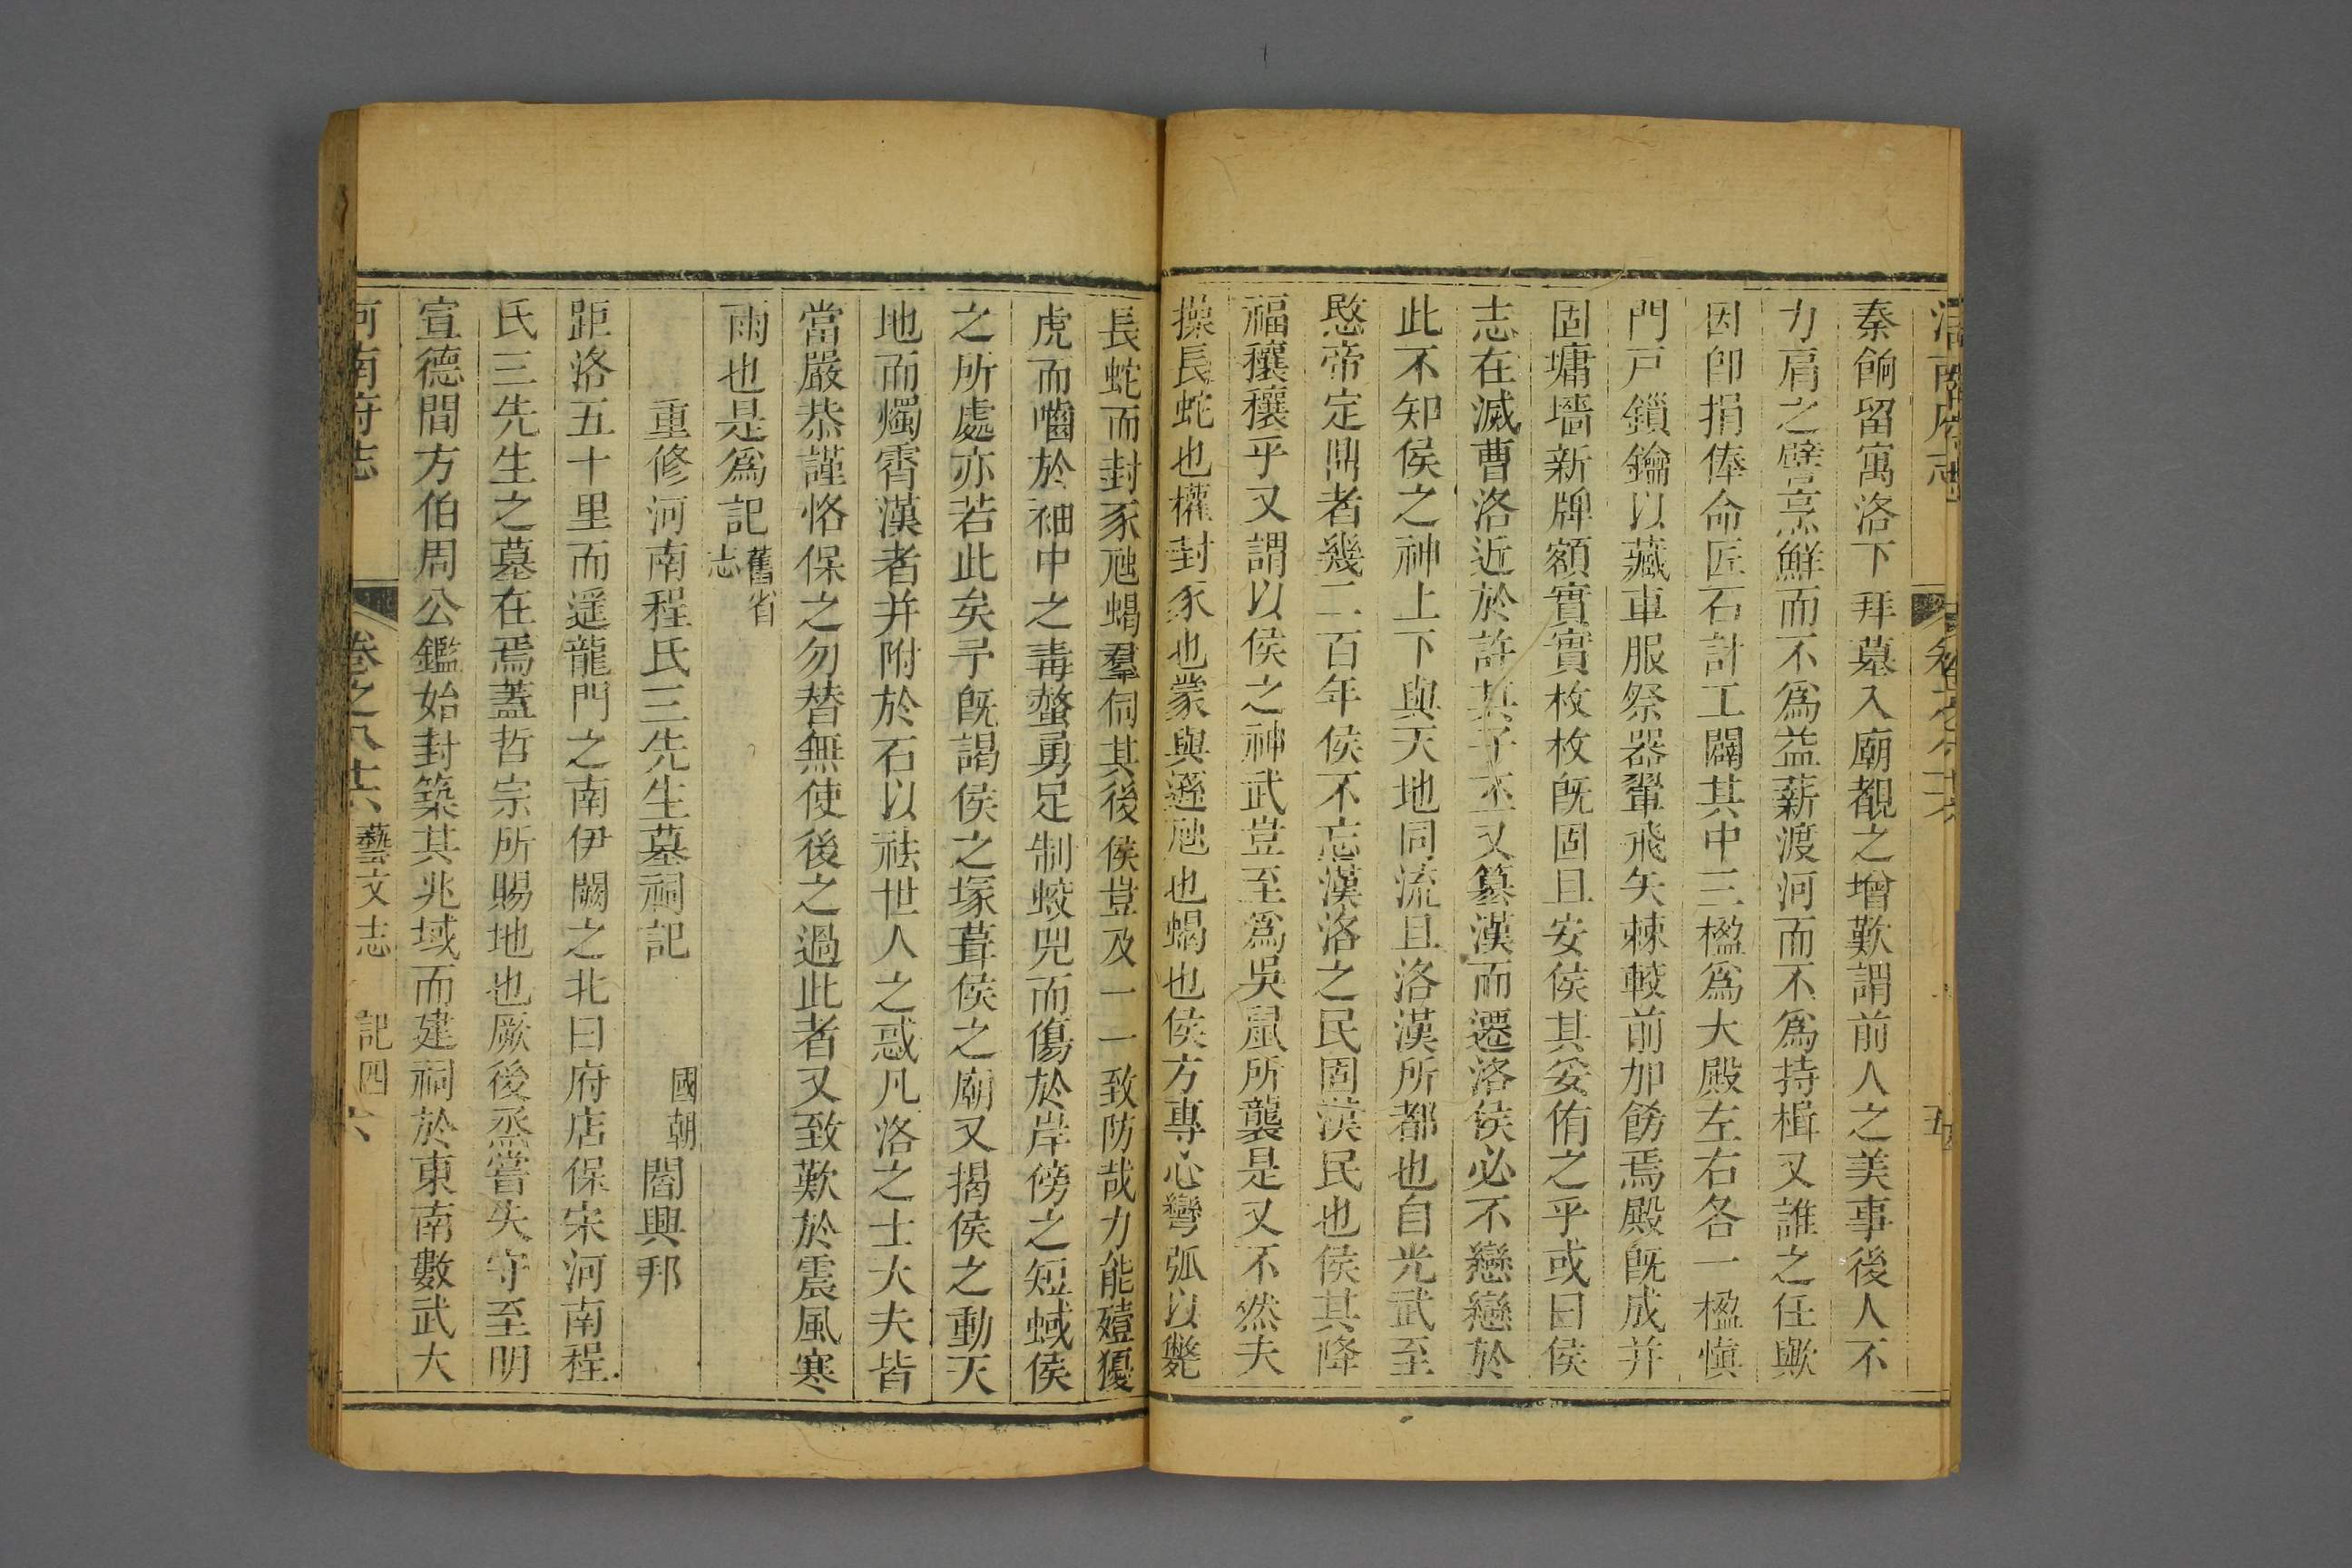 河南府志 卷之八十六 五
秦餉留寓洛下拜墓入廟覩之增歎謂前人之美事後人不
力肩之譬烹鮮而不爲益薪渡河而不爲持楫又誰之任歟
因卽捐俸命匠石計工闢其中三楹爲大殿左右各一楹愼
門戸鎖鑰以藏車服祭器翬飛矢棘較前加餝焉殿旣成并
固墉墻新牌額實實枚枚旣固且安侯其妥侑之乎或曰侯
志在滅曹洛近於許其子丕又簒漢而遷洛侯必不戀戀於
此不知侯之神上下與天地同流且洛漢所都也自光武至
愍帝定鼎者幾二百年侯不忘漢洛之民固漢民也侯其降
福穰穰乎又謂以侯之神武豈至爲吳鼠所襲是又不然夫
操長蛇也權封豕也蒙與遜虺也蝎也侯方專心彎弧以斃
長蛇而封豕虺蝎羣伺其後侯豈及一一致防哉力能殪獶
虎而嚙於袖中之毒螫勇足制蛟兕而傷於岸傍之短蜮侯
之所處亦若此矣予旣謁侯之塚葺侯之廟又揭侯之動天
地而燭霄漢者并附於石以祛世人之惑凡洛之士大夫皆
當嚴恭謹恪保之勿替無使後之過此者又致歎於震風寒
雨也是爲記舊省志
重修河南程氏三先生墓祠記 國朝閻興邦
距洛五十里而遥龍門之南伊闕之北曰府店保宋河南程
氏三先生之墓在焉蓋哲宗所賜地也厥後烝嘗失守至明
宣德間方伯周公鑑始封築其兆域而建祠於東南數武大
河南府志 卷之八十六 藝文志 記四 六